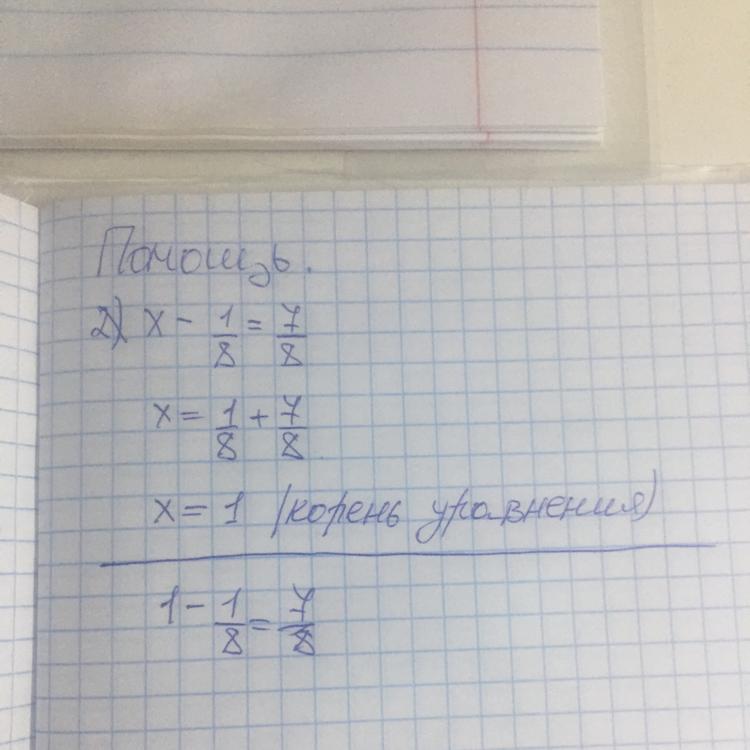 Помощь.
2) x - 1/8 = 7/8
x = 1/8 + 7/8
x = 1 (корень уравнения)
1 - 1/8 = 7/8